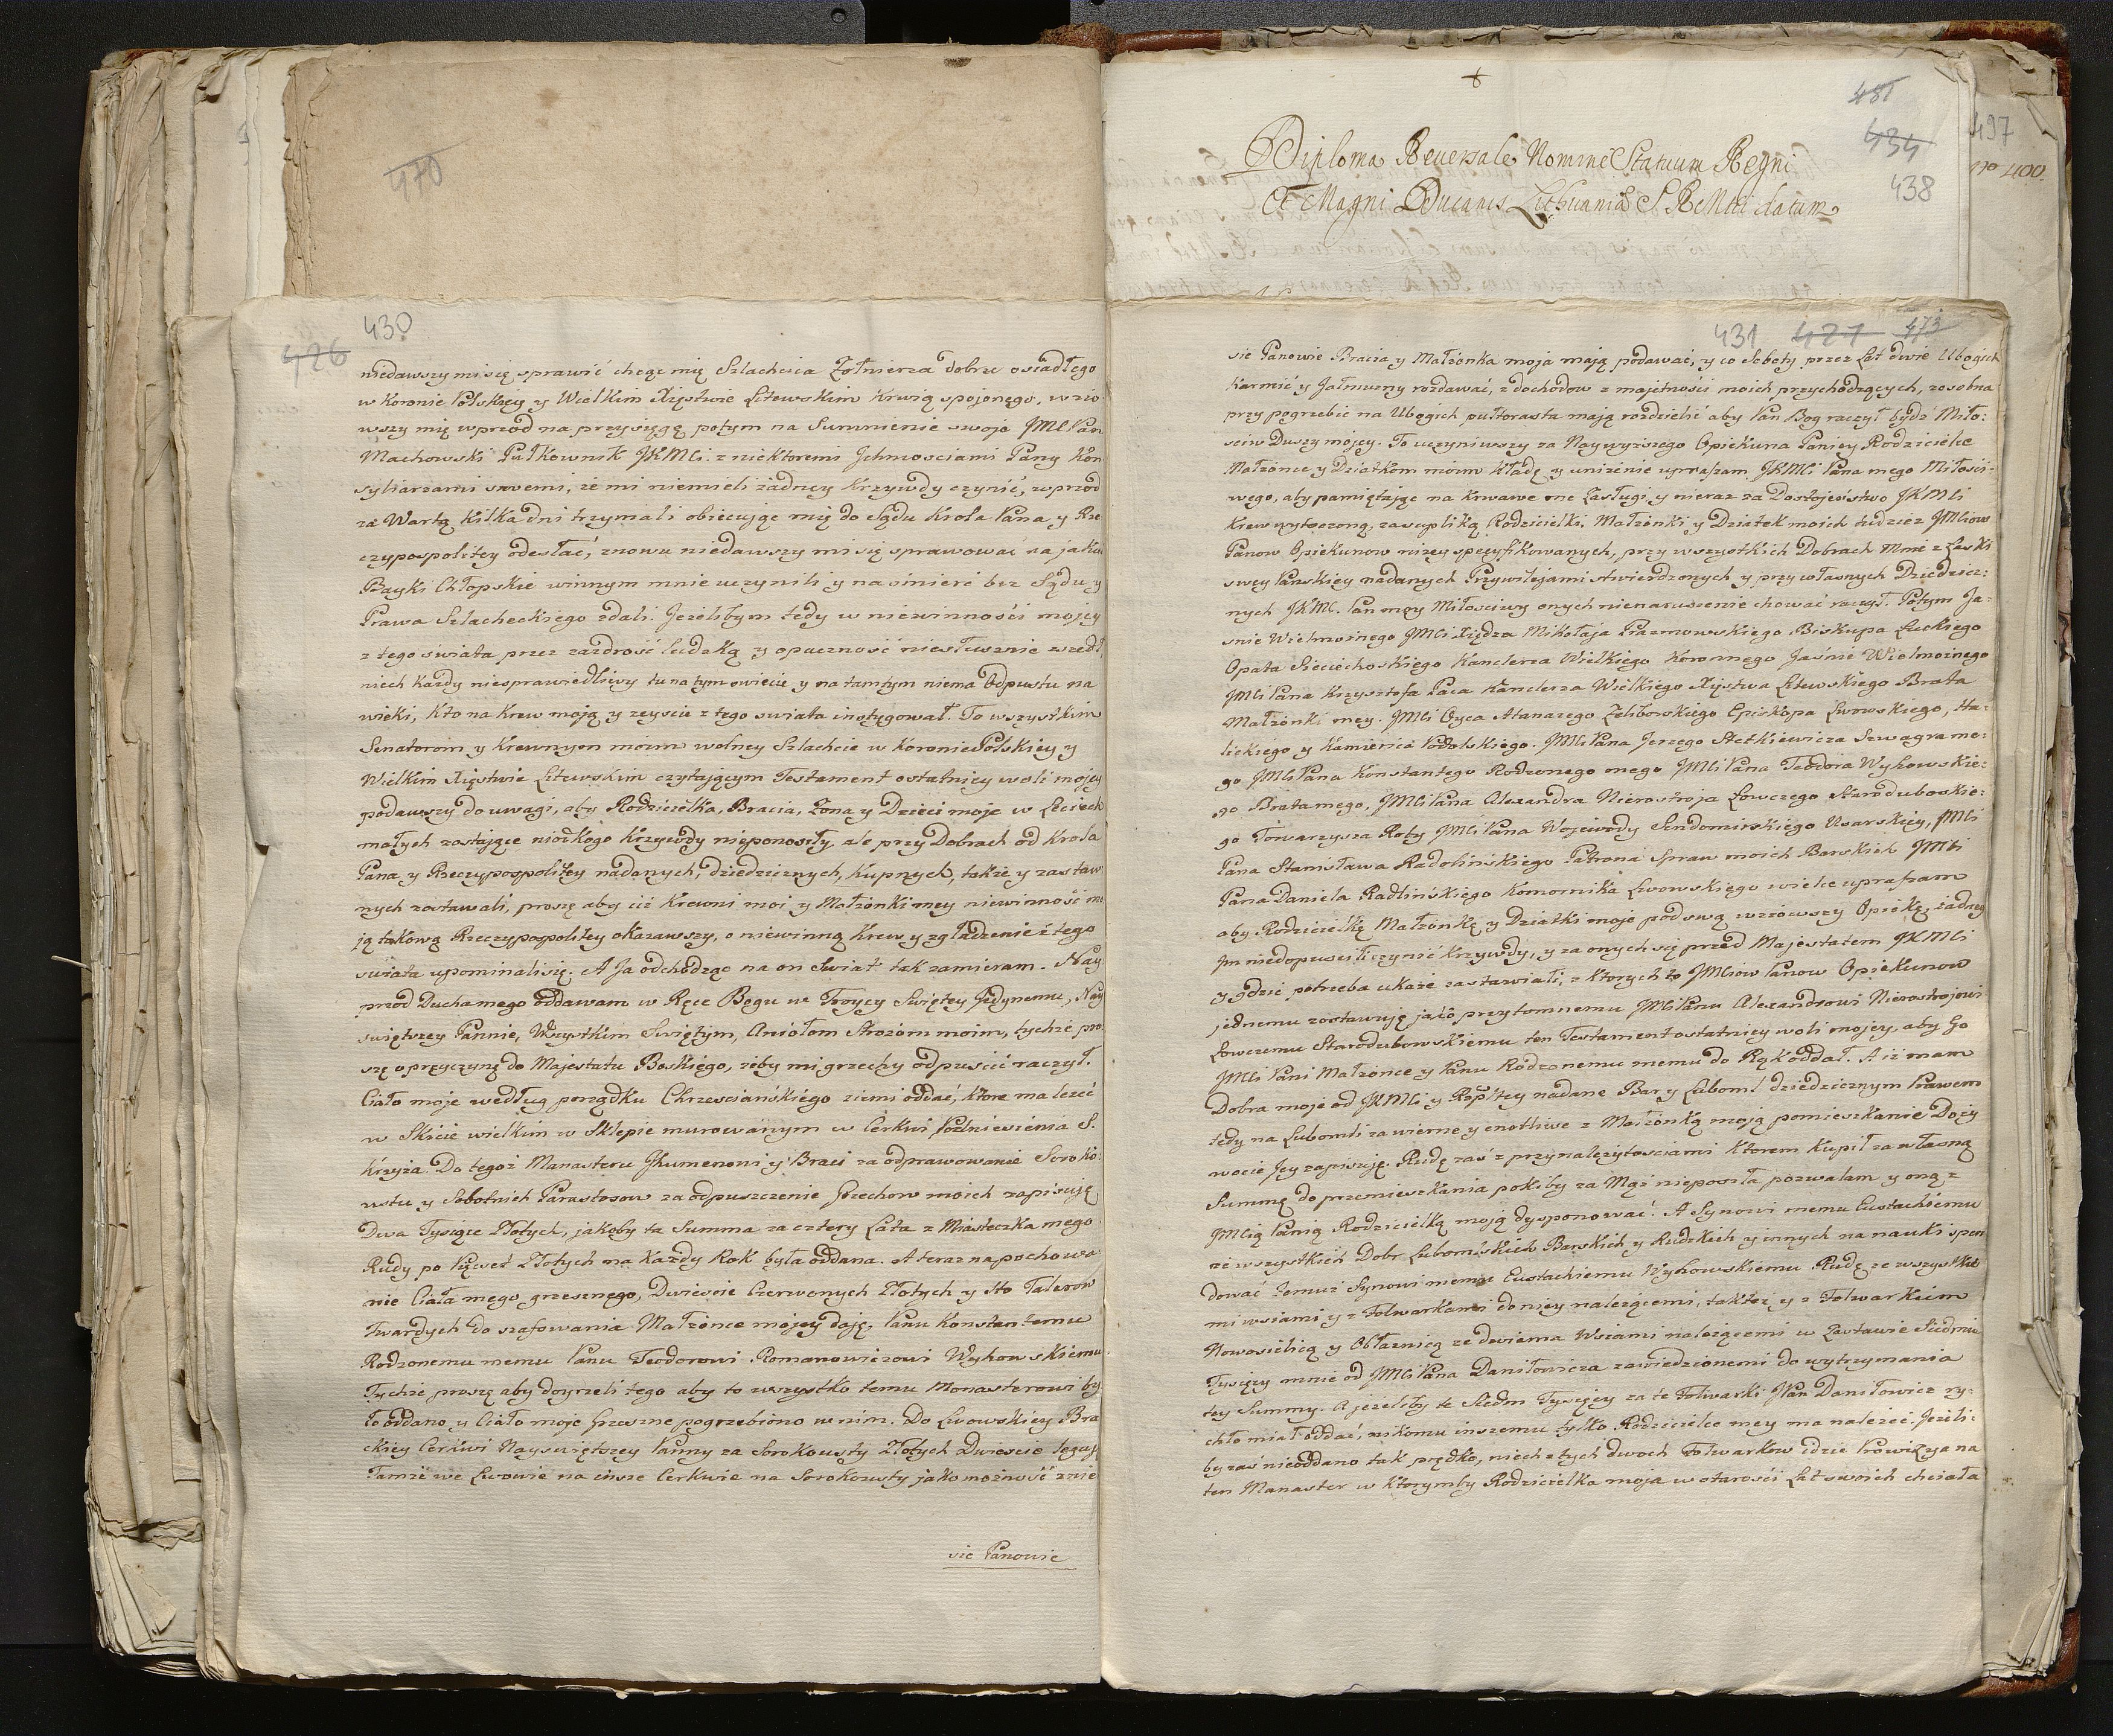 470
430
426
niedawszy mi się sprawić chcąc mię Szlachcica Żołnierza dobrze osiadłego
w Koronie Polskiey y Wielkim Xięstwie Litewskim Krwią spojonego, wzio
wszy mię wprzod na przysięgę potym na Summienie swoje JMC Pan
Machowski Pułkownik JKMCi z niektoremi Jchmosciami Pany Kon
syliarzami swemi, że mi niemieli żadney Krzywdy czynić, wprzod
za Wartą Kilka dni trzymali obiecując mię do Sądu Krola Pana y Rze
czypospolitey odesłać, znowu niedawszy mi się sprawować na jakieś
Bayki Chłopskie winnym mnie uczynili y na śmierć bez Sądu y
Prawa Szlacheckiego zdali. Jeżelibym tedy w niewinności mojey
z tego świata przez zazdrość ludzką y opaczność niesłusznie zszedł,
niech Każdy niesprawiedliwy tu na tym swiecie y na tamtym niema Odpustu na
wieki, Kto na Krew moją y zeyscie z tego swiata instygował. To wszystkim
Senatorom y Krewnym moim wolney Szlachcie w Koronie Polskiey y
Wielkim Xięstwie Litewskim czytającym Testament ostatniey woli mojey
podawszy do uwagi, aby Rodzicielka, Bracia, Żona y Dzieci moje w Leciech
małych zostające niodkogo Krzywdy nieponosiły, ale przy Dobrach od Krola
Pana y Rzeczypospolitey nadanych, dziedzicznych, Kupnych, także y zastaw
nych zostawali, proszę aby ciż Krewni moi y Małżonki mey niewinność mo
ją takową Rzeczypospolitey okazawszy, o niewinną Krew y zgładzenie z tego
swiata upominali się. A Ja odchodząc na on Swiat tak zamieram. Nay
przod Ducha mego oddawam w Ręce Bogu w Troycy Swiętey Jedynemu, Nay
swiętszey Pannie, Wszystkim Swiętym, Aniołom Strożom moim, tychże pro
szę o przyczynę do Majestatu Boskiego, żeby mi grzechy odpuscić raczył.
Ciało moje według porządku Chrzescianskiego ziemi oddać, ktore ma leżeć
w Skicie wielkim w Sklepie murowanym w Cerkwi Podniesienia S.
Krzyża. Do tegoż Manasteru Jhumenowi y Braci za odprawowanie Soroko
ustu y Sobotnich Parastasow za odpuszczenie Grzechow moich zapisuję
Dwa Tysiące Złotych, jakoby ta Summa za cztery Lata z Miasteczka mego
Rudy po Pięćset Złotych na każdy Rok była oddana. A teraz na pochowa
nie Ciała mego grzesznego, Dwiescie Czerwonych Złotych y Sto Talerow
Twardych do szafowania Małżonce mojey daję, Panu Konstantemu
Rodzonemu memu Panu Teodorowi Romanowiczowi Wyhowskiemu
Tychże proszę aby doyrzeli tego aby to wszystko temu Monasterowi by
ło oddano, y Ciało moje Grzeszne pogrzebiono w nim. Do Lwowskiey Bra
ckiey Cerkwi Nayswiętszey Panny za Sorokousty Złotych Dwiescie leguję
Tamże we Lwowie na insze Cerkwie na Sorokousty jako możność znie
sie Panowie
481
434
438
497
no 400
Diploma Reversale Nomine Statuum Regni
Et Magni Ducatus Lithuaniæ S R Mtti datum
431 427 473
sie Panowie Bracia y Małżonka moja mają podawać, y co Soboty przez Lat dwie Ubogich
Karmić y Jałmużny rozdawać, z dochodow z majętności moich przychodzących, zosobna
przy pogrzebie na Ubogich pułtorasta mają rozdzielić aby Pan Bog raczył bydź Miło:
sciw Duszy mojey. To uczyniwszy za Naywyższego Opiekuna Paniey Rodzicielce
Małżonce y Dziatkom moim Kładę y uniżenie upraszam JKMCi Pana mego Miłości:
wego, aby pamiętając na Krwawe me Zasługi y nieraz za Dostojeństwo JKMCi
Krew wytoczoną, za supliką Rodzicielki, Małżonki y Dziatek moich tudziez JMCiow
Panow Opiekunow niżey specyfikowanych, przy wszystkich Dobrach Mnie z Łaski
swey Panskiey nadanych Przywilejami stwierdzonych y przy własnych Dziedzicz:
nych JKMC. Pan moy Miłosciwy onych nienaruszenie chować raczył. Potym Ja:
snie Wielmożnego JMCi Xiędza Mikołaja Prazmowskiego Biskupa Łuckiego
Opata Sieciechoskiego Kanclerza Wielkiego Koronnego Jaśnie Wielmożnego
JMCi Pana Krzysztofa Paca Kanclerza Wielkiego Xięstwa Litewskiego Brata
Małżonki mey. JMCi Oyca Atanazego Zeliborskiego Episkopa Lwowskiego, Ha:
lickiego y Kamieńca Podolskiego. JMCi Pana Jerzego Stetkiewicza Szwagra me:
go JMCi Pana Konstantego Rodzonego mego JMCi Pana Teodora Wyhowskie:
go Brata mego, JMCi Pana Alexandra Nierostroja Łowczego Staroduboskie:
go Towarzysza Roty JMCi Pana Wojewody Sendomirskiego Usarskiey, JMCi
Pana Stanisława Radolińskiego Patrona Spraw moich Barskich JMCi
Pana Daniela Radlińskiego Komornika Lwowskiego wielce upraszam
aby Rodzicielkę Małżonkę, y Dziatki moje pod swą wziowszy Opiekę, żadney
Jm niedopuscili czynić Krzywdy, y za onych się przed Majestatem JKMCi
y gdzie potrzeba ukaże zastawiali, z ktorych to JMCiow Panow Opiekunow
jednemu zostawuję jako przytomnemu JMCi Panu Alexandrowi Nierostrojowi
Łowczemu Starodubowskiemu ten Testament ostatniey woli mojey, aby Go
JMCi Pani Małżonce y Panu Rodzonemu memu do Rąk oddał. A iż mam
Dobra moje od JKMCi y Rzpltey nadane Bar y Lubomł dziedzicznym Prawem
tedy na Lubomli za wierne y cnotliwe z Małżonką moją pomieszkanie Doży
wocie Jey zapisuję. Rudę zaś z przynależytosciami Ktorem Kupił za własną
Summę do przemieszkania pokiby za Mąż nieposzła pozwalam y oną z
JMCią Panią Rodzicielką moją dysponować. A Synowi memu Eustachiemu
ze wszystkich Dobr Lubomskich Barskich y Rudzkich y innych na nauki spen
dować Temuż Synowi memu Eustachiemu Wyhowskiemu Rudę ze wszystkie
mi wsiami y z Folwarkami do niey należącemi, także y z Folwarkiem
Nowosielicą y Obłaznicą ze dwiema Wsiami należącemi w Zastawie Siedmiu
Tysięcy mnie od JMCi Pana Daniłowicza zawiedzionemi do wytrzymania
tey Summy. A jeżeliby te Siedm Tysięcy za te Folwarki JPan Daniłowicz ry:
chło miał oddać, nikomu inszemu tylko Rodzicielce mey ma należeć. Jeżeli:
by zaś nieoddano tak prędko, niech z tych dwoch Folwarkow idzie Prowizya na
ten Manaster w Ktorymby Rodzicielka moja w starości Lat swoich chciała